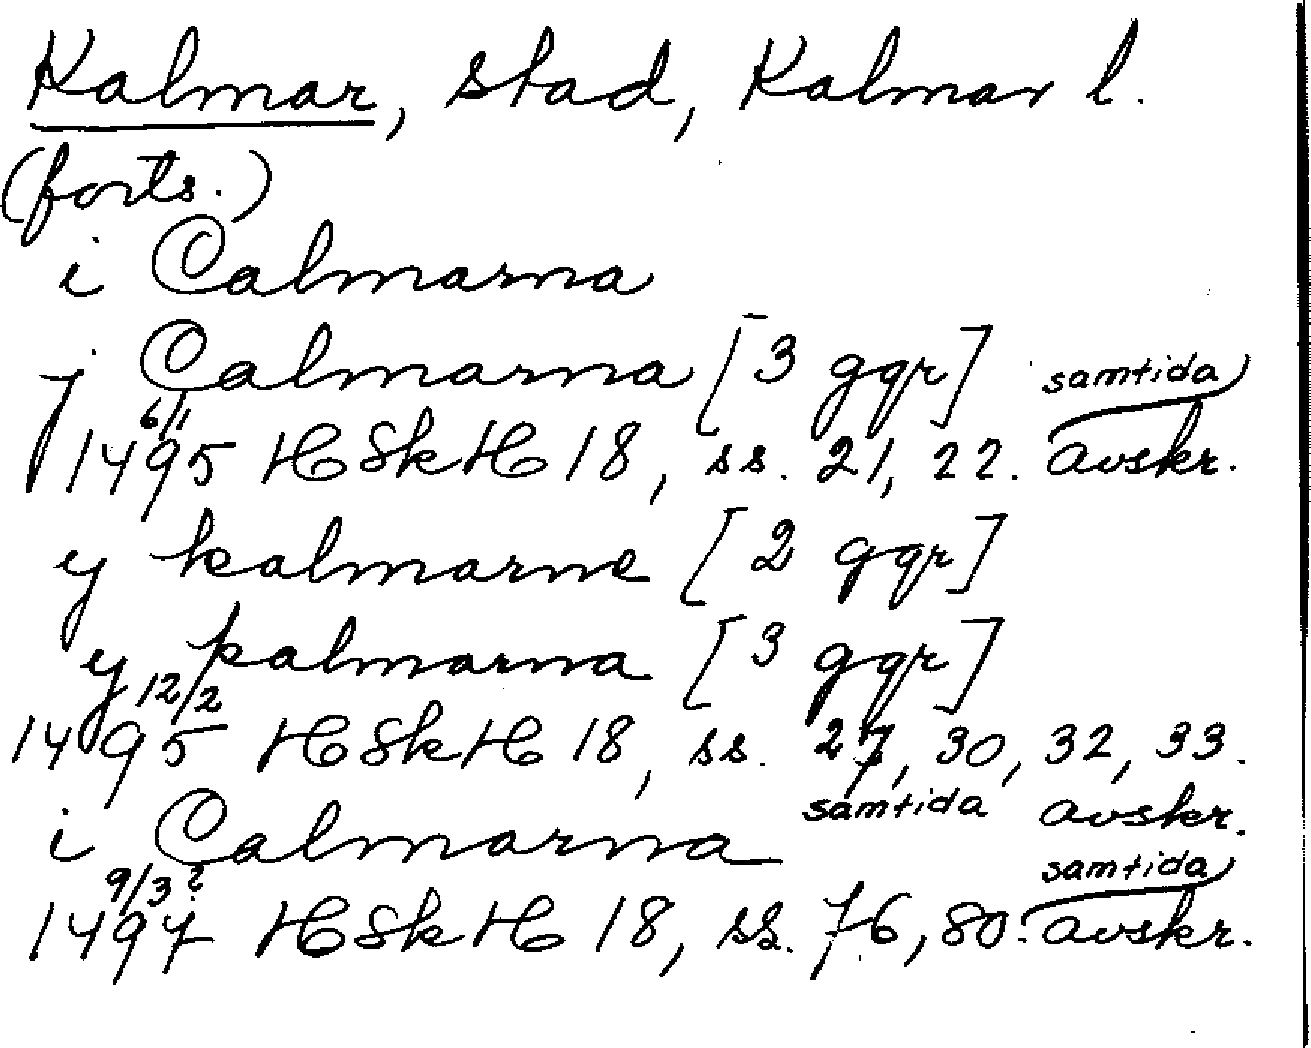 Kalmar, stad, Kalmar l.
(forts.)
i Calmarna
j Calmarna [3 ggr]
1495 6/1 HSkH 18, ss. 21, 22. samtida avskr.
y kalmarne [2 ggr]
y kalmarna [3 ggr]
1495 12/2 HSkH 18, ss. 27, 30, 32, 33.
samtida avskr.
i Calmarna
1497 9/3? HSkH 18, ss. 76, 80. samtida avskr.